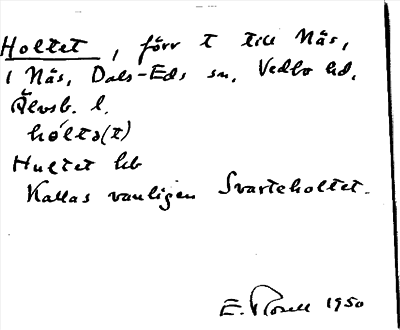 Holtet, förr t till Näs,
i Näs, Dals-Eds sn, Vedbo hd,
Älvsb. l.
hól̀tə(t)
Hultet hb
Kallas vanligen Svarteholtet.
E. Rosell 1950